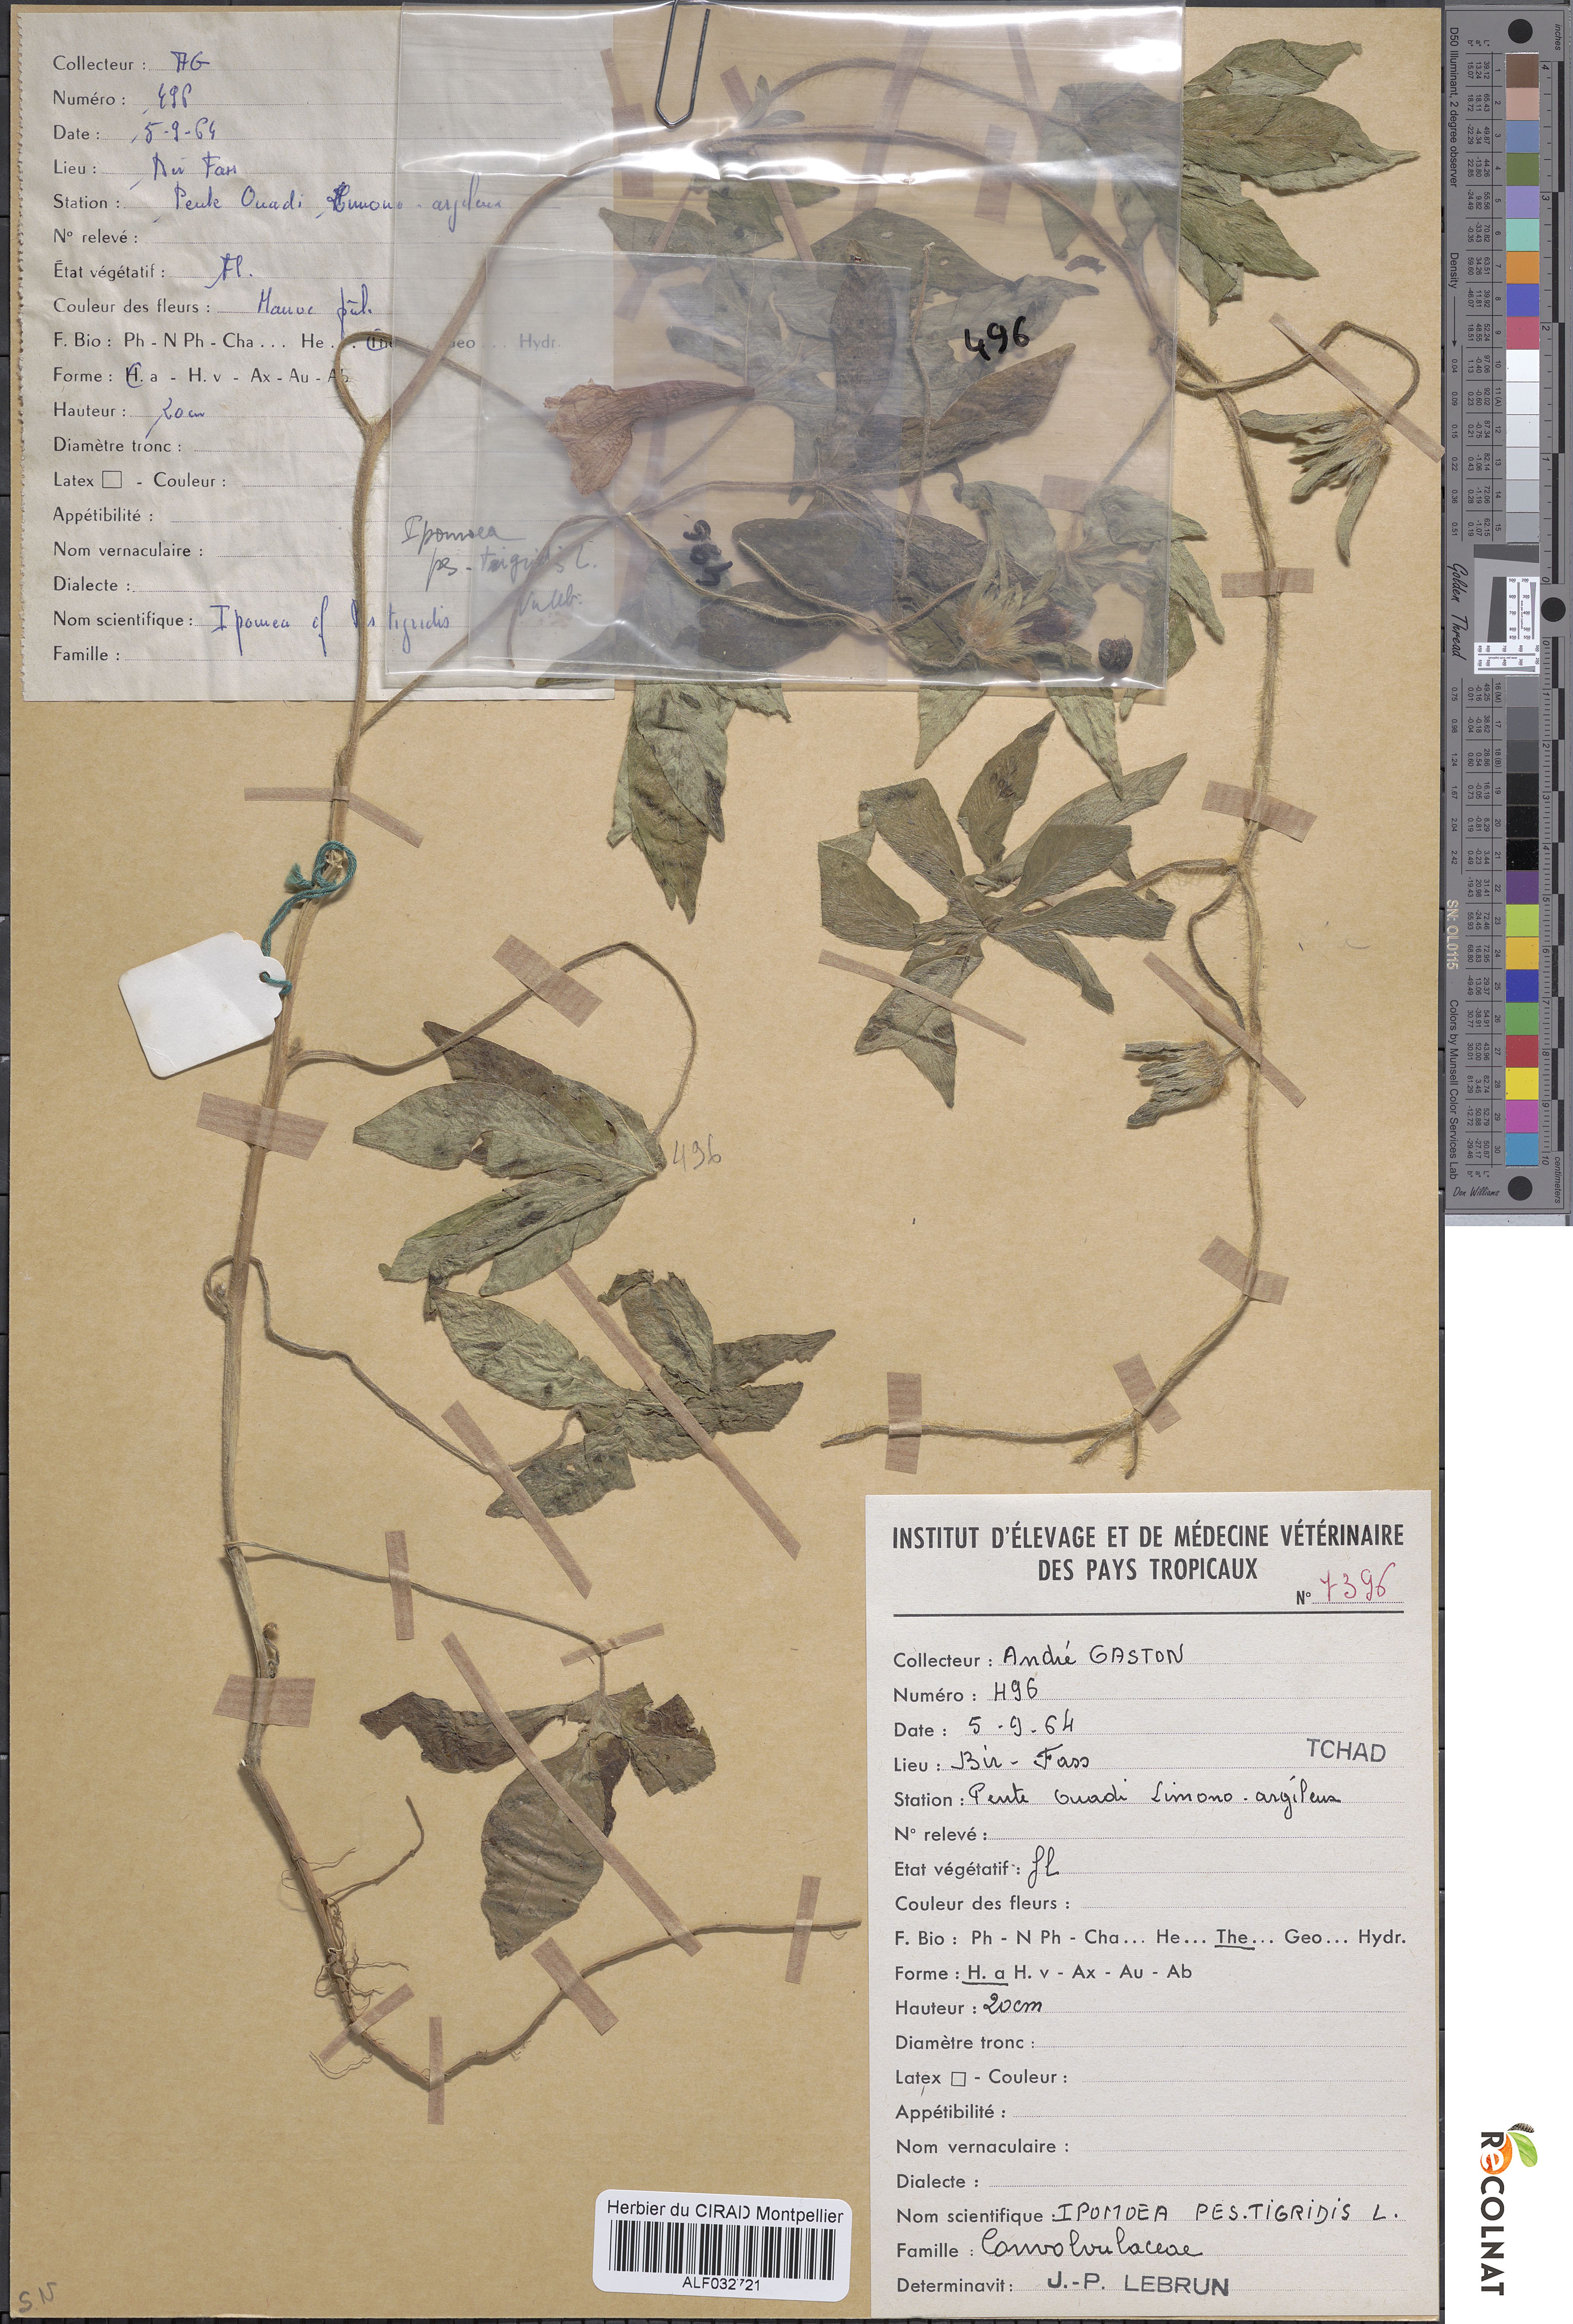 Collecteur : AG
Numéro : 496
Date : 5-9-64
Lieu : Bir Fass
Station : Pente Ouadi Limono-argileux
N° relevé :
État végétatif : Fl.
Couleur des fleurs : Mauve pâle
F. Bio : Ph - N Ph - Cha ... He ... The ... Geo ... Hydr.
Forme : H. a - H. v - Ax - Au - Ab
Hauteur : 20 cm
Diamètre tronc :
Latex □ - Couleur :
Appétibilité :
Nom vernaculaire :
Dialecte :
Nom scientifique : Ipomea cf Pes tigridis
Famille :
Ipomoea
pes-tigridis L.
496
496
INSTITUT D'ÉLEVAGE ET DE MÉDECINE VÉTÉRINAIRE
DES PAYS TROPICAUX
N° 7396
Collecteur : André GASTON
Numéro : 496
Date : 5-9-64
TCHAD
Lieu : Bir-Fass
Station : Pente Ouadi Limono-argileux
N° relevé :
Etat végétatif : fl
Couleur des fleurs :
F. Bio : Ph - N Ph - Cha... He... The... Geo... Hydr.
Forme : H. a H. v - Ax - Au - Ab
Hauteur : 20cm
Diamètre tronc :
Latex □ - Couleur :
Appétibilité :
Nom vernaculaire :
Dialecte :
Nom scientifique : IPOMOEA PES.TIGRIDIS L.
Famille : Convolvulaceae
Determinavit : J.-P. LEBRUN
Herbier du CIRAD Montpellier
ALF032721
S.N
D50 Illuminant, 2 degree observer
Density
Golden Thread
SN: OL0115
Colors by Munsell Color Services Lab
Don Williams
inches
centimeters
RECOLNAT